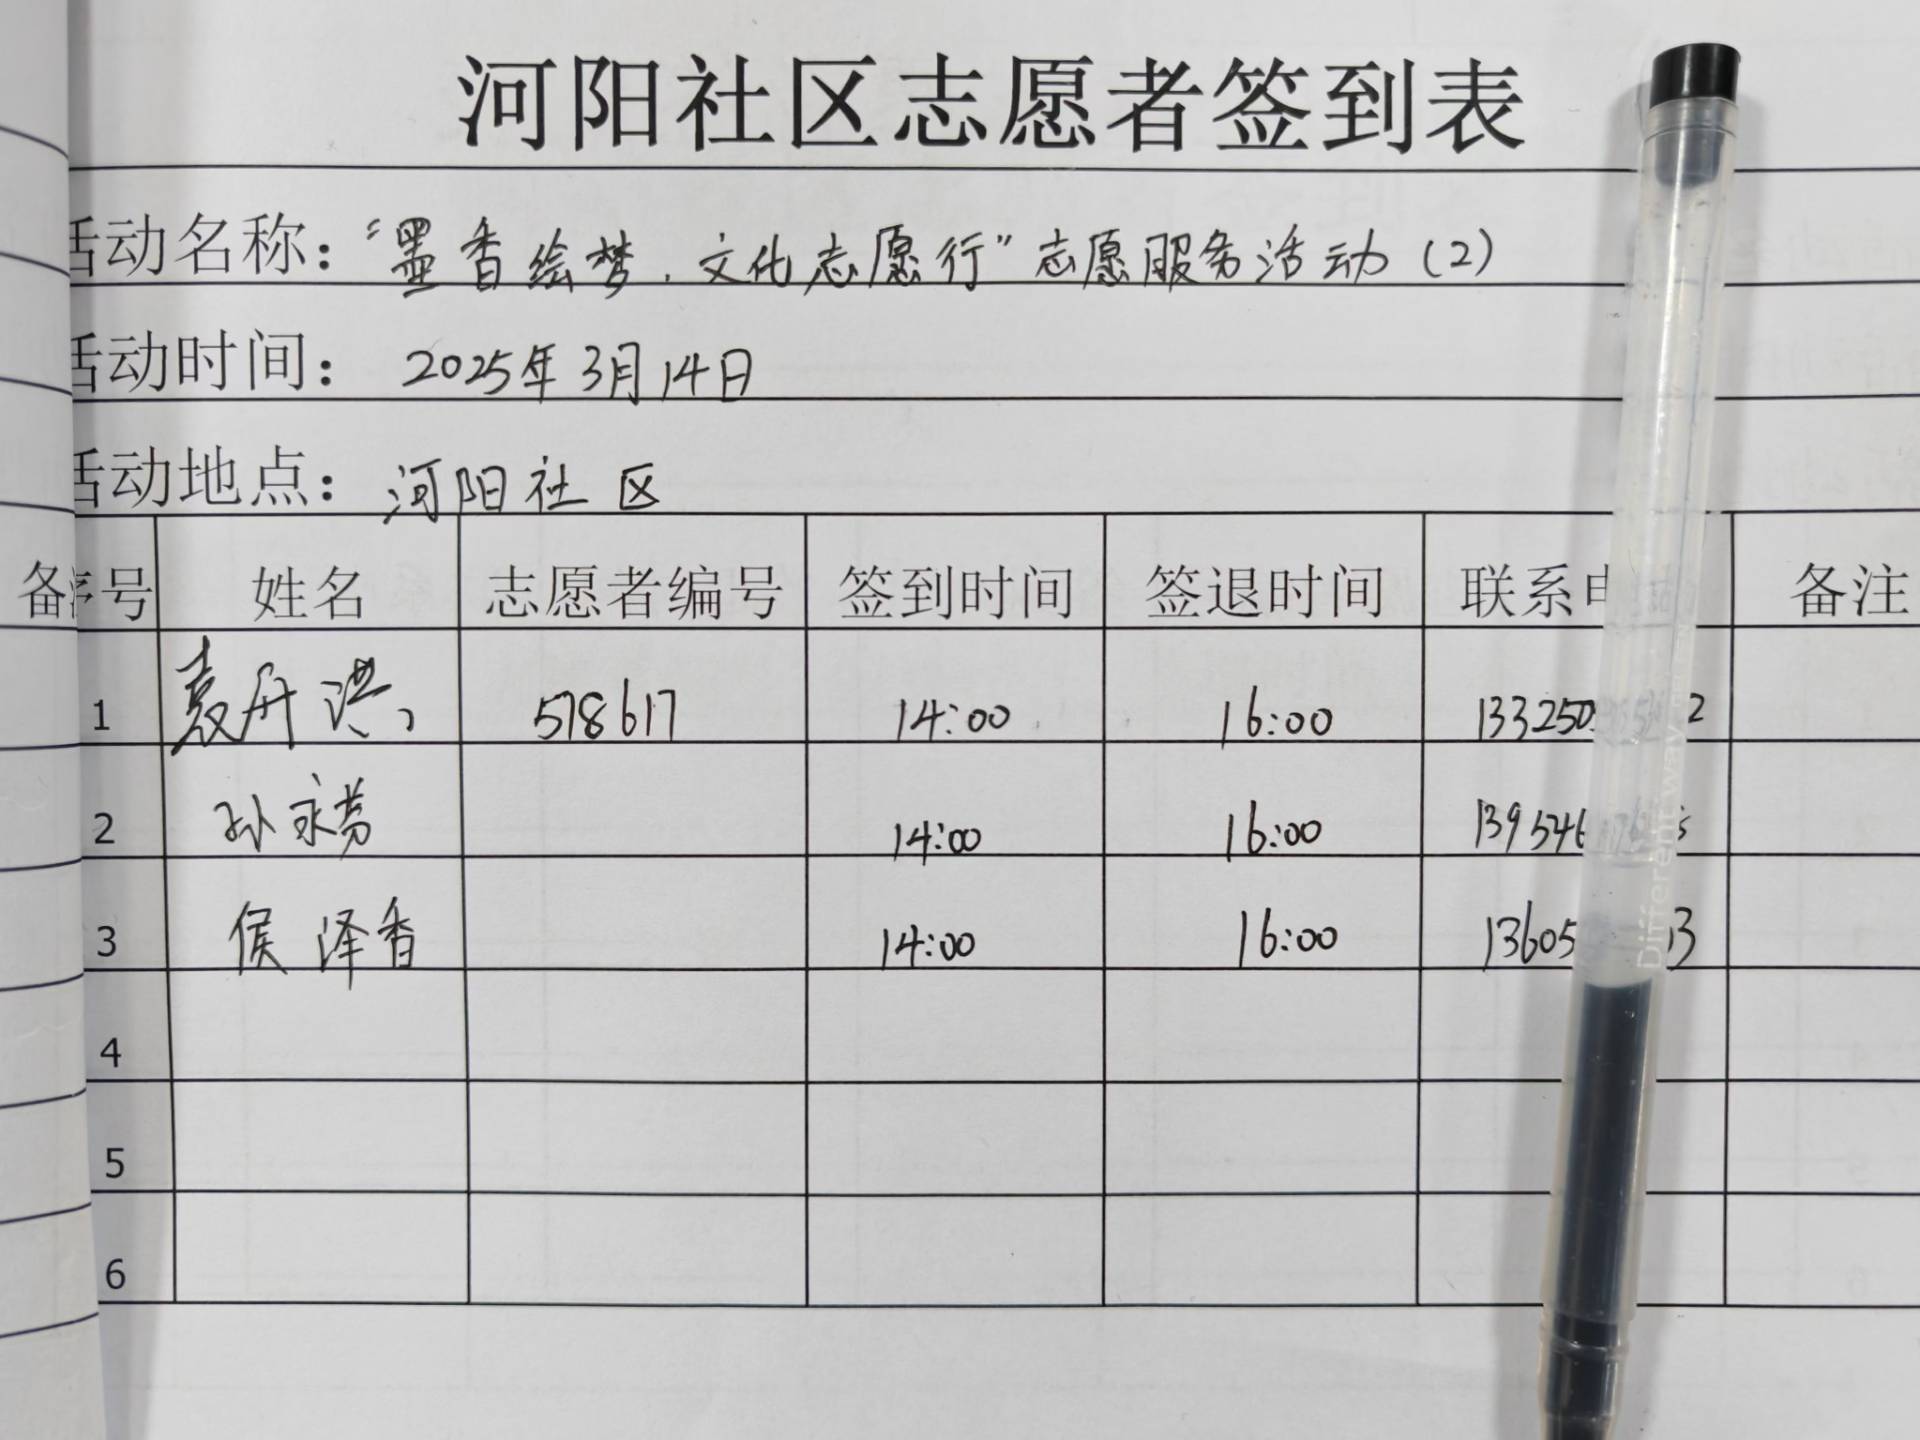 河阳社区志愿者签到表
活动名称："墨香绘梦．文化志愿行"志愿服务活动（2）
活动时间：2025年3月14日
活动地点：河阳社区
备 序号 姓名 志愿者编号 签到时间 签退时间 联系电话 备注
1 袁丹洪 578617 14:00 16:00 133250 2
2 孙永芳 14:00 16:00 139546 5
3 侯泽香 14:00 16:00 13605 13
4
5
6
Different way